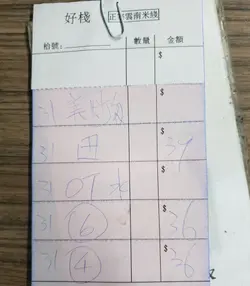 好棧 正宗雲南米綫
枱號: 數量 金額
$
31
31 田 $ 39
31 OT 水 $
31 ⑥ $ 36
31 ④ $ 36